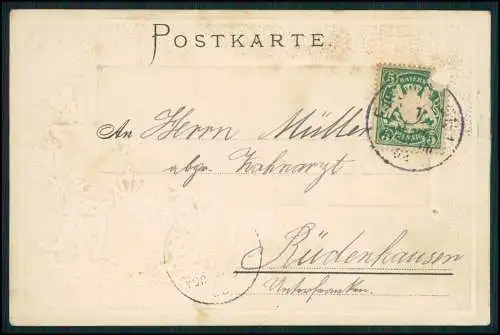 POSTKARTE.
5 BAYERN 5
An Herrn Müller
abgr. Zahnarzt
Rüdenhausen
Unterfranken.